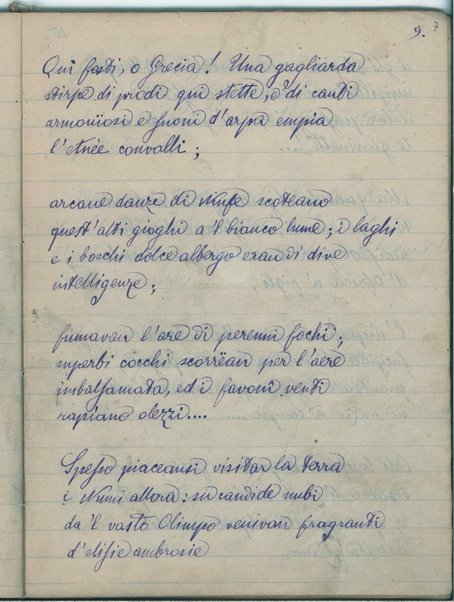 9. 7
Qui fosti, o Grecia! Una gagliarda
stirpe di prodi qui stette, e di canti
armoniosi e suoni d'arpa empìa
l'etnée convalli;
arcane danze di Ninfe scoteano
quest'alti gioghi a 'l bianco lume; i laghi
e i boschi dolce albergo eran di dive
intelligenze;
fumavan l'are di perenni fochi;
superbi cocchi scorrëan per l'aere
imbalsamata, ed i favonî venti
rapiano olezzi....
Spesso piaceansi visitar la terra
i Numi allora: su candide nubi
da 'l vasto Olimpo venivan fragranti
d'elisie ambrosie